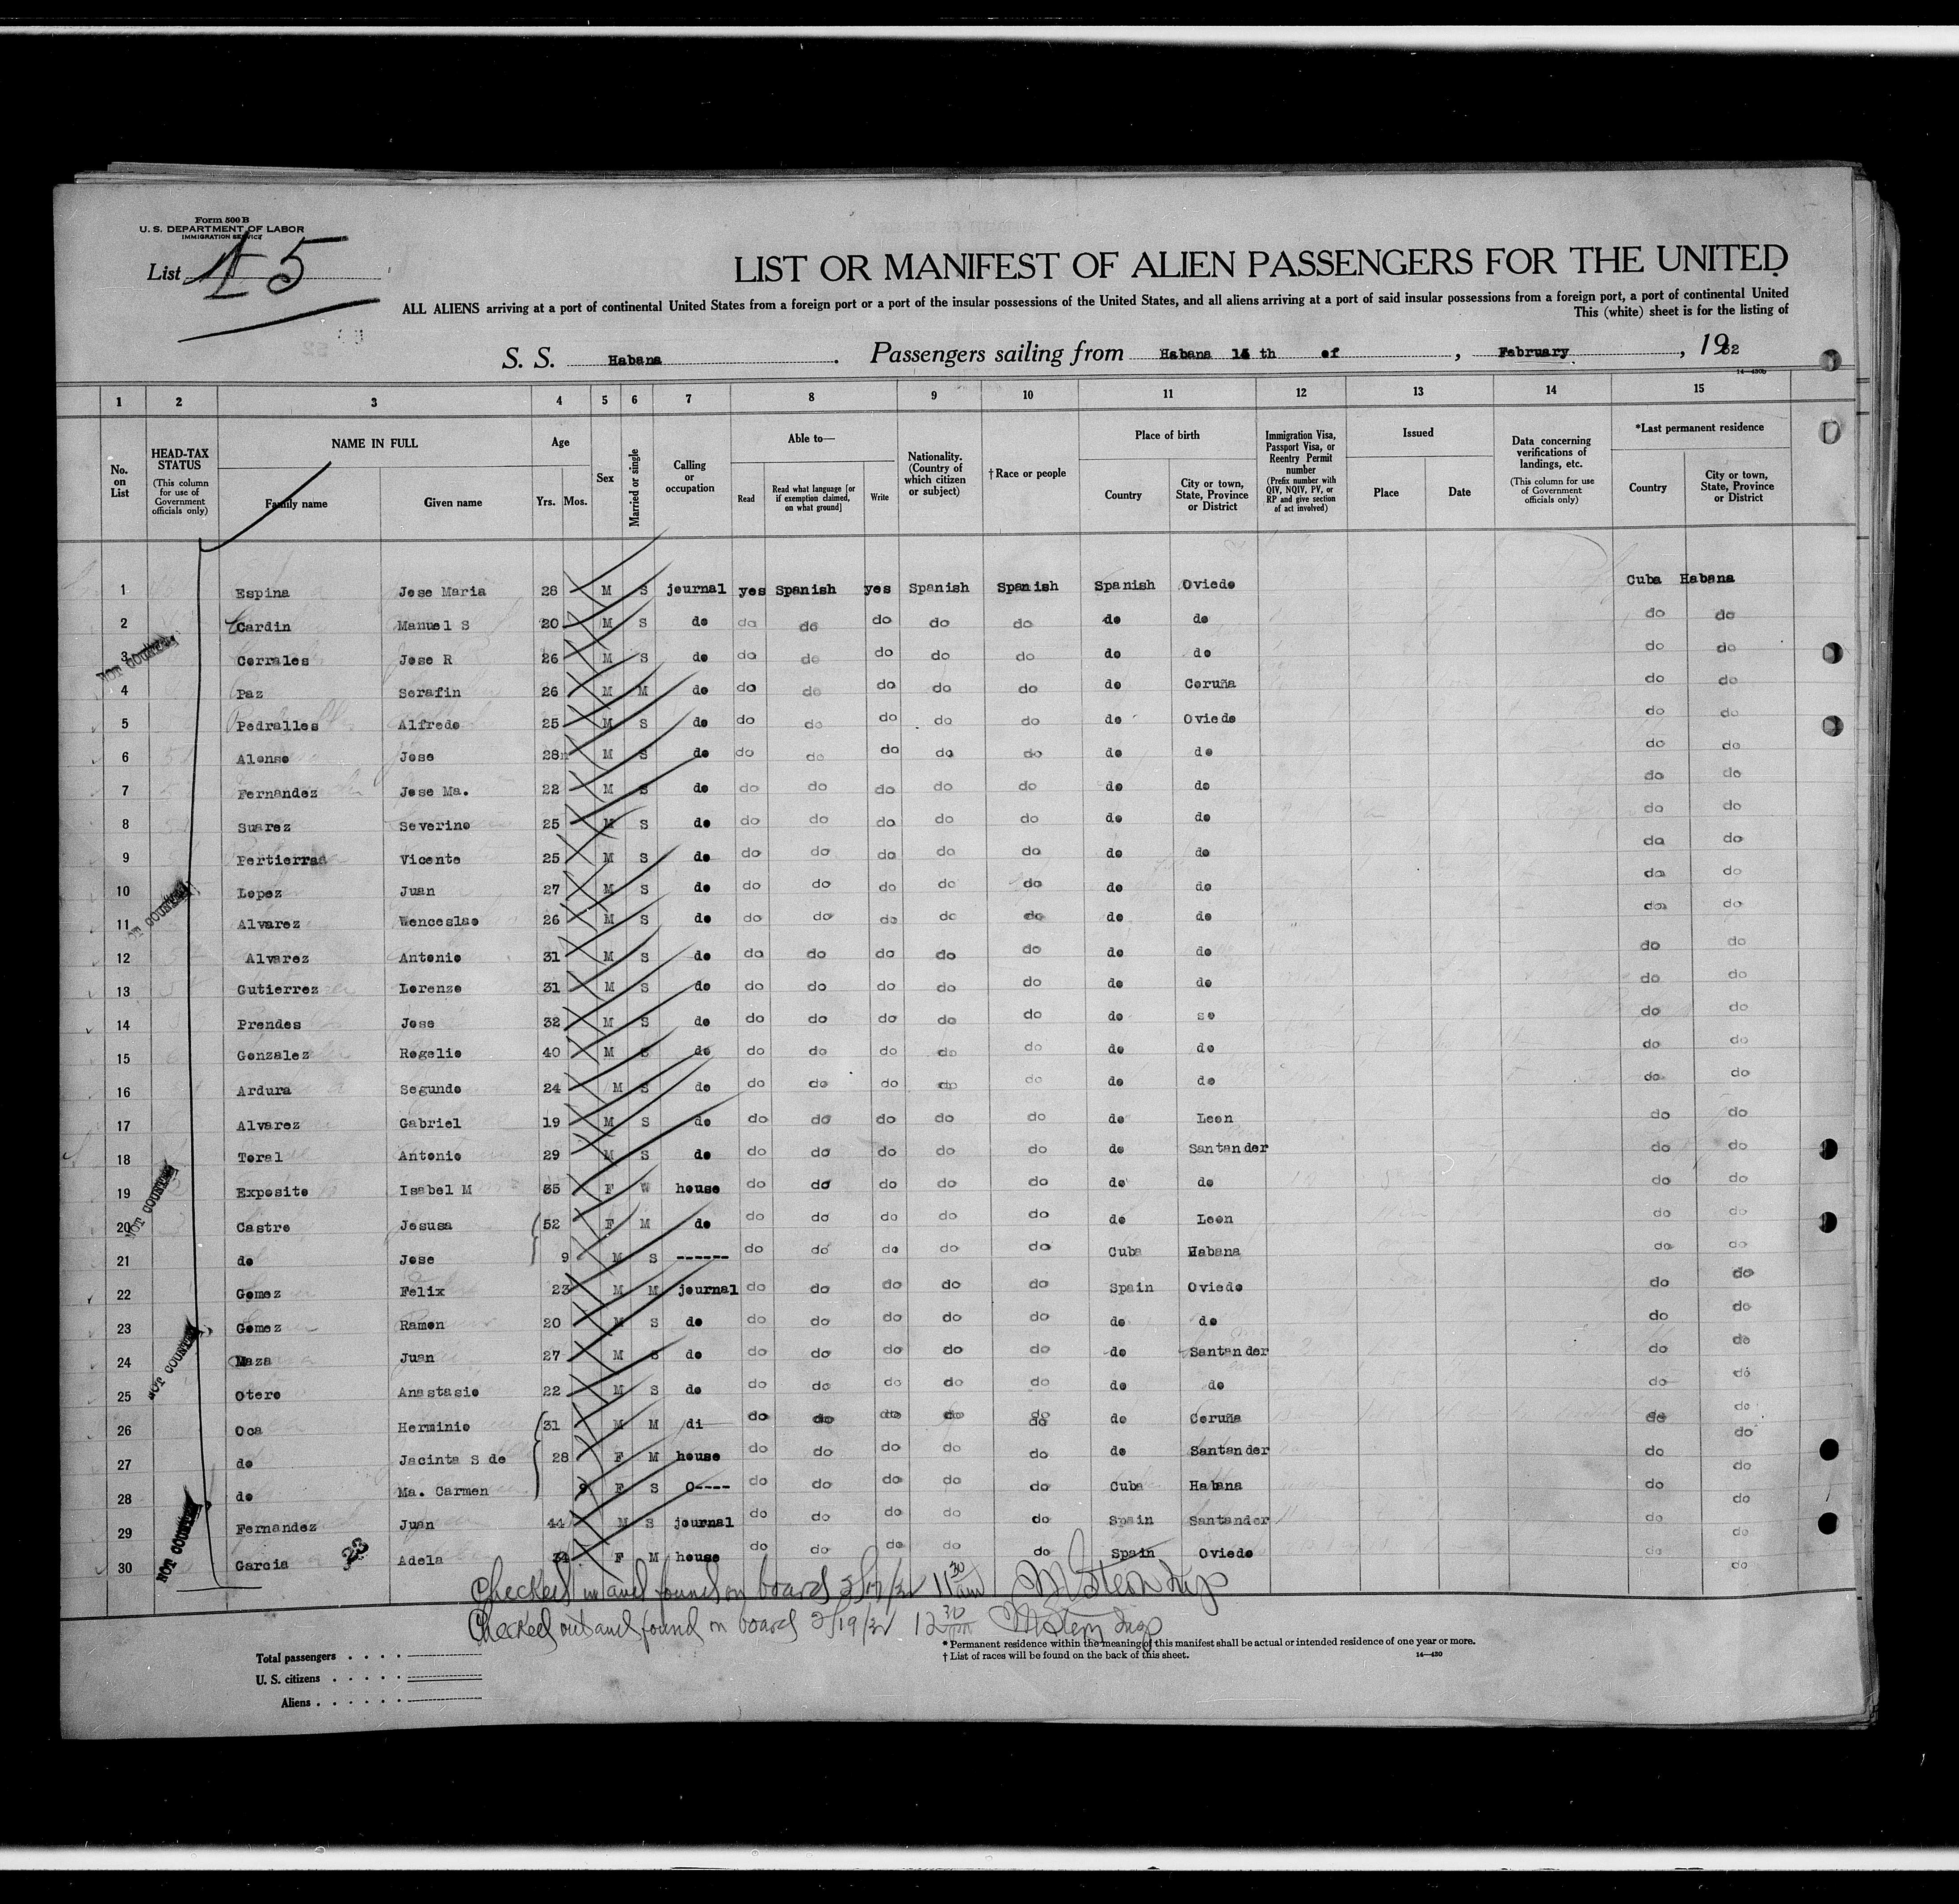 Form 500 B
U. S. DEPARTMENT OF LABOR
IMMIGRATION SERVICE
List 45
LIST OR MANIFEST OF ALIEN PASSENGERS FOR THE UNITED
ALL ALIENS arriving at a port of continental United States from a foreign port or a port of the insular possessions of the United States, and all aliens arriving at a port of said insular possessions from a foreign port, a port of continental United
This (white) sheet is for the listing of
S. S. Habana. Passengers sailing from Habana th of, February, 1932
1 2 3 4 5 6 7 8 9 10 11 12 13 14 15
No. on List
HEAD-TAX STATUS (This column for use of Government officials only)
NAME IN FULL Family name Given name
Age Yrs. Mos.
Sex
Married or single
Calling or occupation
Able to— Read Read what language [or if exemption claimed, on what ground] Write
Nationality. (Country of which citizen or subject)
†Race or people
Place of birth Country City or town, State, Province or District
Immigration Visa, Passport Visa, or Reentry Permit number (Prefix number with QIV, NQIV, PV, or RP and give section of act involved)
Issued Place Date
Data concerning verifications of landings, etc. (This column for use of Government officials only)
*Last permanent residence Country City or town, State, Province or District
1 Espina Jose Maria 28 M S journal yes Spanish yes Spanish Spanish Spanish Oviedo Cuba Habana
2 Cardin Manuel S 20 M S do do do do do do do do do do
3 Corrales Jose R 26 M S do do do do do do do do do do
4 Paz Serafin 26 M M do do do do do do do Coruña do do
5 Pedralles Alfredo 25 M S do do do do do do do Oviedo do do
6 Alonso Jose 28 M S do do do do do do do do do do
7 Fernandez Jose Ma. 22 M S do do do do do do do do do do
8 Suarez Severino 25 M S do do do do do do do do do do
9 Pertierra Vicente 25 M S do do do do do do do do do do
10 Lopez Juan 27 M S do do do do do do do do do do
11 Alvarez Wenceslao 26 M S do do do do do do do do do do
12 Alvarez Antonio 31 M S do do do do do do do do do do
13 Gutierrez Lorenzo 31 M S do do do do do do do do do do
14 Prendes Jose 32 M S do do do do do do do so do do
15 Gonzalez Rogelio 40 M S do do do do do do do do do do
16 Ardura Segundo 24 M S do do do do do do do do do do
17 Alvarez Gabriel 19 M S do do do do do do do Leon do do
18 Toral Antonio 29 M S do do do do do do do Santander do do
19 Exposito Isabel M 35 F W house do do do do do do do do do
20 Castro Jesusa 52 F M do do do do do do do Leon do do
21 do Jose 9 M S ------ do do do do do Cuba Habana do do
22 Gomez Felix 23 M M journal do do do do do Spain Oviedo do do
23 Gomez Ramon 20 M S do do do do do do do do do do
24 Maza Juan 27 M S do do do do do do do Santander do do
25 Otero Anastasio 22 M S do do do do do do do do do do
26 Oca Herminio 31 M M di do do do do do do Coruña do do
27 do Jacinta S de 28 F M house do do do do do do Santander do do
28 do Ma. Carmen 9 F S 0---- do do do do do Cuba Habana do do
29 Fernandez Juan 44 M S journal do do do do do Spain Santander do do
30 Garcia 23 Adela 34 F M house do do do do do Spain Oviedo do do
NOT COUNTED
NOT COUNTED
NOT COUNTED
NOT COUNTED
NOT COUNTED
Checked in and found on board 2/17/32 11 30 am M Stern Insp
Checked out and found on board 2/19/32 12 30 M Stern Insp
* Permanent residence within the meaning of this manifest shall be actual or intended residence of one year or more.
† List of races will be found on the back of this sheet. 14—430
Total passengers
U. S. citizens
Aliens